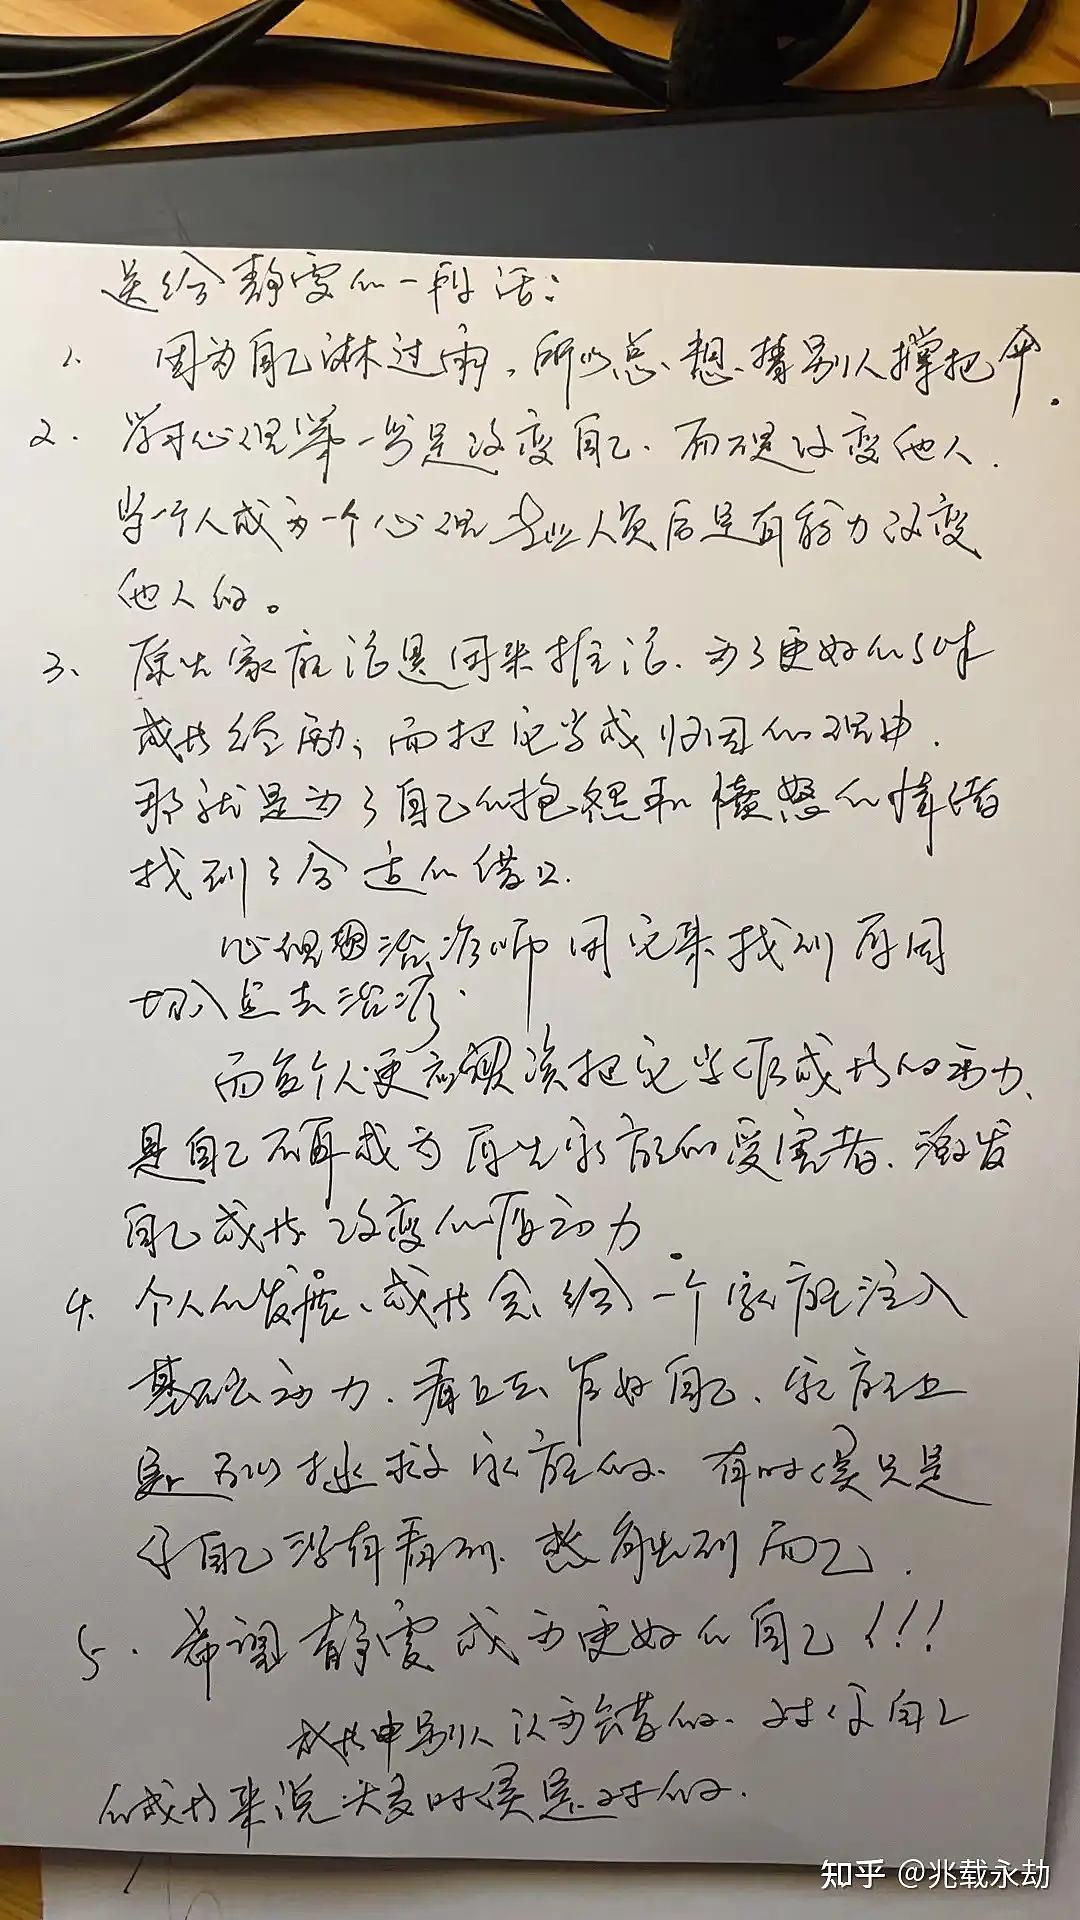 送给静雯的一段话:
1. 因为自己淋过雨,所以总想替别人撑把伞。
2. 学习心理第一步是改变自己.而不是改变他人.
当一个人成为一个心理专业人员后是有能力改变
他人的。
3、原生家庭论是用来推论.为了更好的
成长经历;而把它当成归因的理由.
那就是为了自己的抱怨和愤怒的情绪
找到了合适的借口.
心理治疗师用它来找到原因
切入点去治疗.
而每个人更应该把它当作成长的动力、
是自己不再成为原生家庭的受害者.激发
自己成长改变的原动力.
4. 个人的发展、成长会给一个家庭注入
基础动力.看上去管好自己、家庭
拯救家庭的.有时候只是
自己没有看到.感觉到而已.
5. 希望静雯成为更好的自己!!!
成长中别人认为会错的.对你自己
的成长来说大多时候是对的.
知乎 @兆载永劫